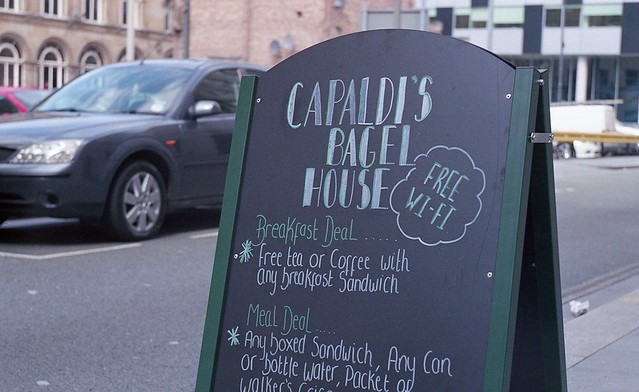 CAPALDI'S
BAGEL
HOUSE
FREE
WI-FI
Breakfast Deal......
* Free tea or Coffee with
any breakfast Sandwich
Meal Deal.....
* Any boxed Sandwich, Any Can
or Bottle water, Packet of
Walker's